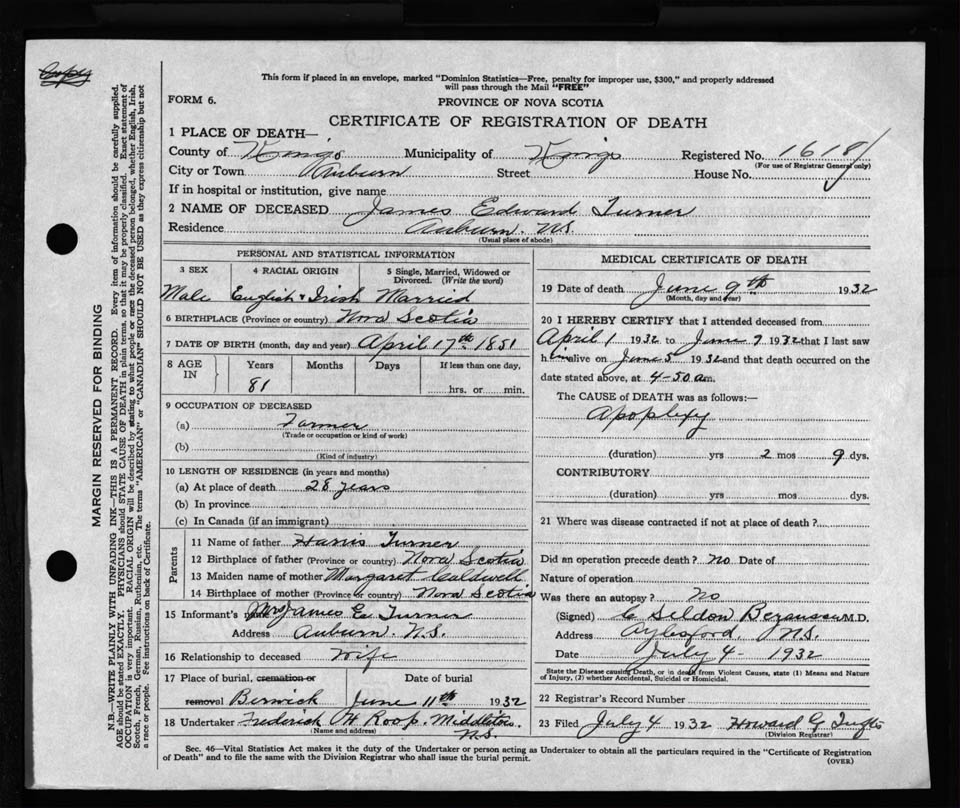 Copy
This form if placed in an envelope, marked "Dominion Statistics—Free, penalty for improper use, $300," and properly addressed
will pass through the Mail "FREE"
FORM 6.
PROVINCE OF NOVA SCOTIA
CERTIFICATE OF REGISTRATION OF DEATH
1 PLACE OF DEATH—
County of Kings Municipality of Kings Registered No. 1618
(For use of Registrar General only)
City or Town Auburn Street House No.
If in hospital or institution, give name
2 NAME OF DECEASED James Edward Turner
Residence Auburn. N.S.
(Usual place of abode)
PERSONAL AND STATISTICAL INFORMATION
3 SEX 4 RACIAL ORIGIN 5 Single, Married, Widowed or
Divorced. (Write the word)
Male English & Irish Married
6 BIRTHPLACE (Province or country) Nova Scotia
7 DATE OF BIRTH (month, day and year) April 17th 1851
8 AGE IN Years Months Days If less than one day,
81 hrs. or min.
9 OCCUPATION OF DECEASED
(a) Farmer
(Trade or occupation or kind of work)
(b)
(Kind of industry)
10 LENGTH OF RESIDENCE (in years and months)
(a) At place of death 28 years
(b) In province
(c) In Canada (if an immigrant)
Parents
11 Name of father Harris Turner
12 Birthplace of father (Province or country) Nova Scotia
13 Maiden name of mother Margaret Caldwell
14 Birthplace of mother (Province or country) Nova Scotia
15 Informant's name Mrs James E. Turner
Address Auburn N.S.
16 Relationship to deceased Wife
17 Place of burial, cremation or Date of burial
removal Berwick June 11th 1932
18 Undertaker Frederick H Roop. Middleton.
(Name and address) N.S.
MEDICAL CERTIFICATE OF DEATH
19 Date of death June 9th 1932
(Month, day and year)
20 I HEREBY CERTIFY that I attended deceased from
April 1 1932 to June 7 1932 that I last saw
him alive on June 5 1932 and that death occurred on the
date stated above, at 4-50 am.
The CAUSE of DEATH was as follows:—
Apoplexy
(duration) yrs 2 mos 9 dys.
CONTRIBUTORY
(duration) yrs. mos. dys.
21 Where was disease contracted if not at place of death?
Did an operation precede death? no Date of
Nature of operation
Was there an autopsy? No
(Signed) C Seldon M.D.
Address Aylesford, N.S.
Date July 4- 1932
State the Disease causing Death, or in death from Violent Causes, state (1) Means and Nature
of Injury, (2) whether Accidental, Suicidal or Homicidal.
22 Registrar's Record Number
23 Filed July 4 1932 Howard G
(Division Registrar)
Sec. 46—Vital Statistics Act makes it the duty of the Undertaker or person acting as Undertaker to obtain all the particulars required in the "Certificate of Registration
of Death" and to file the same with the Division Registrar who shall issue the burial permit.
(OVER)
MARGIN RESERVED FOR BINDING
N.B.—WRITE PLAINLY WITH UNFADING INK—THIS IS A PERMANENT RECORD. Every item of information should be carefully supplied.
AGE should be stated EXACTLY. PHYSICIANS should STATE CAUSE OF DEATH in plain terms, so that it may be properly classified. Exact statement of
OCCUPATION is very important. RACIAL ORIGIN will be described by stating to what people or race the deceased person belonged, whether English, Irish,
Scotch, French, German, Russian, Ruthenian, etc. The terms "AMERICAN" or "CANADIAN" SHOULD NOT BE USED as they express citizenship but not
a race or people. See instructions on back of Certificate.